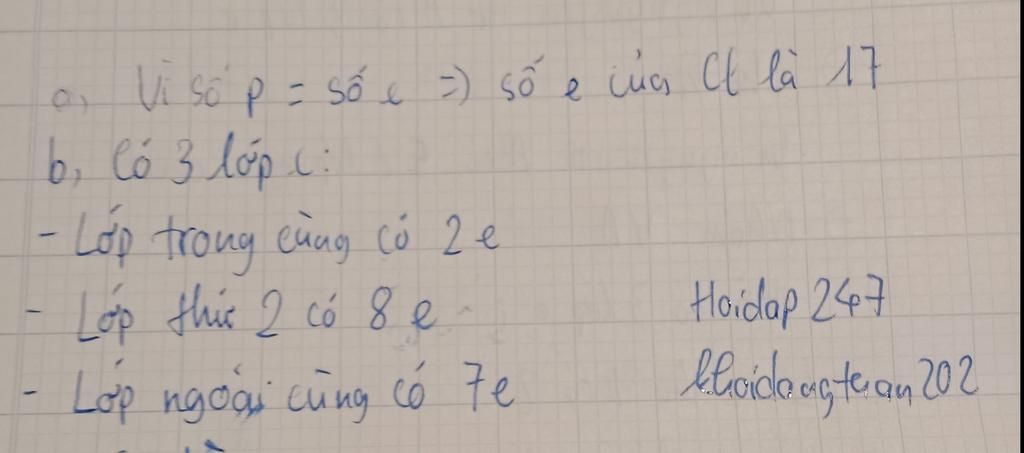 a, Vì số p = số e => số e của Cl là 17
b, Có 3 lớp e:
- Lớp trong cùng có 2e
- Lớp thứ 2 có 8 e
Hoidap 247
- Lớp ngoài cùng có 7e